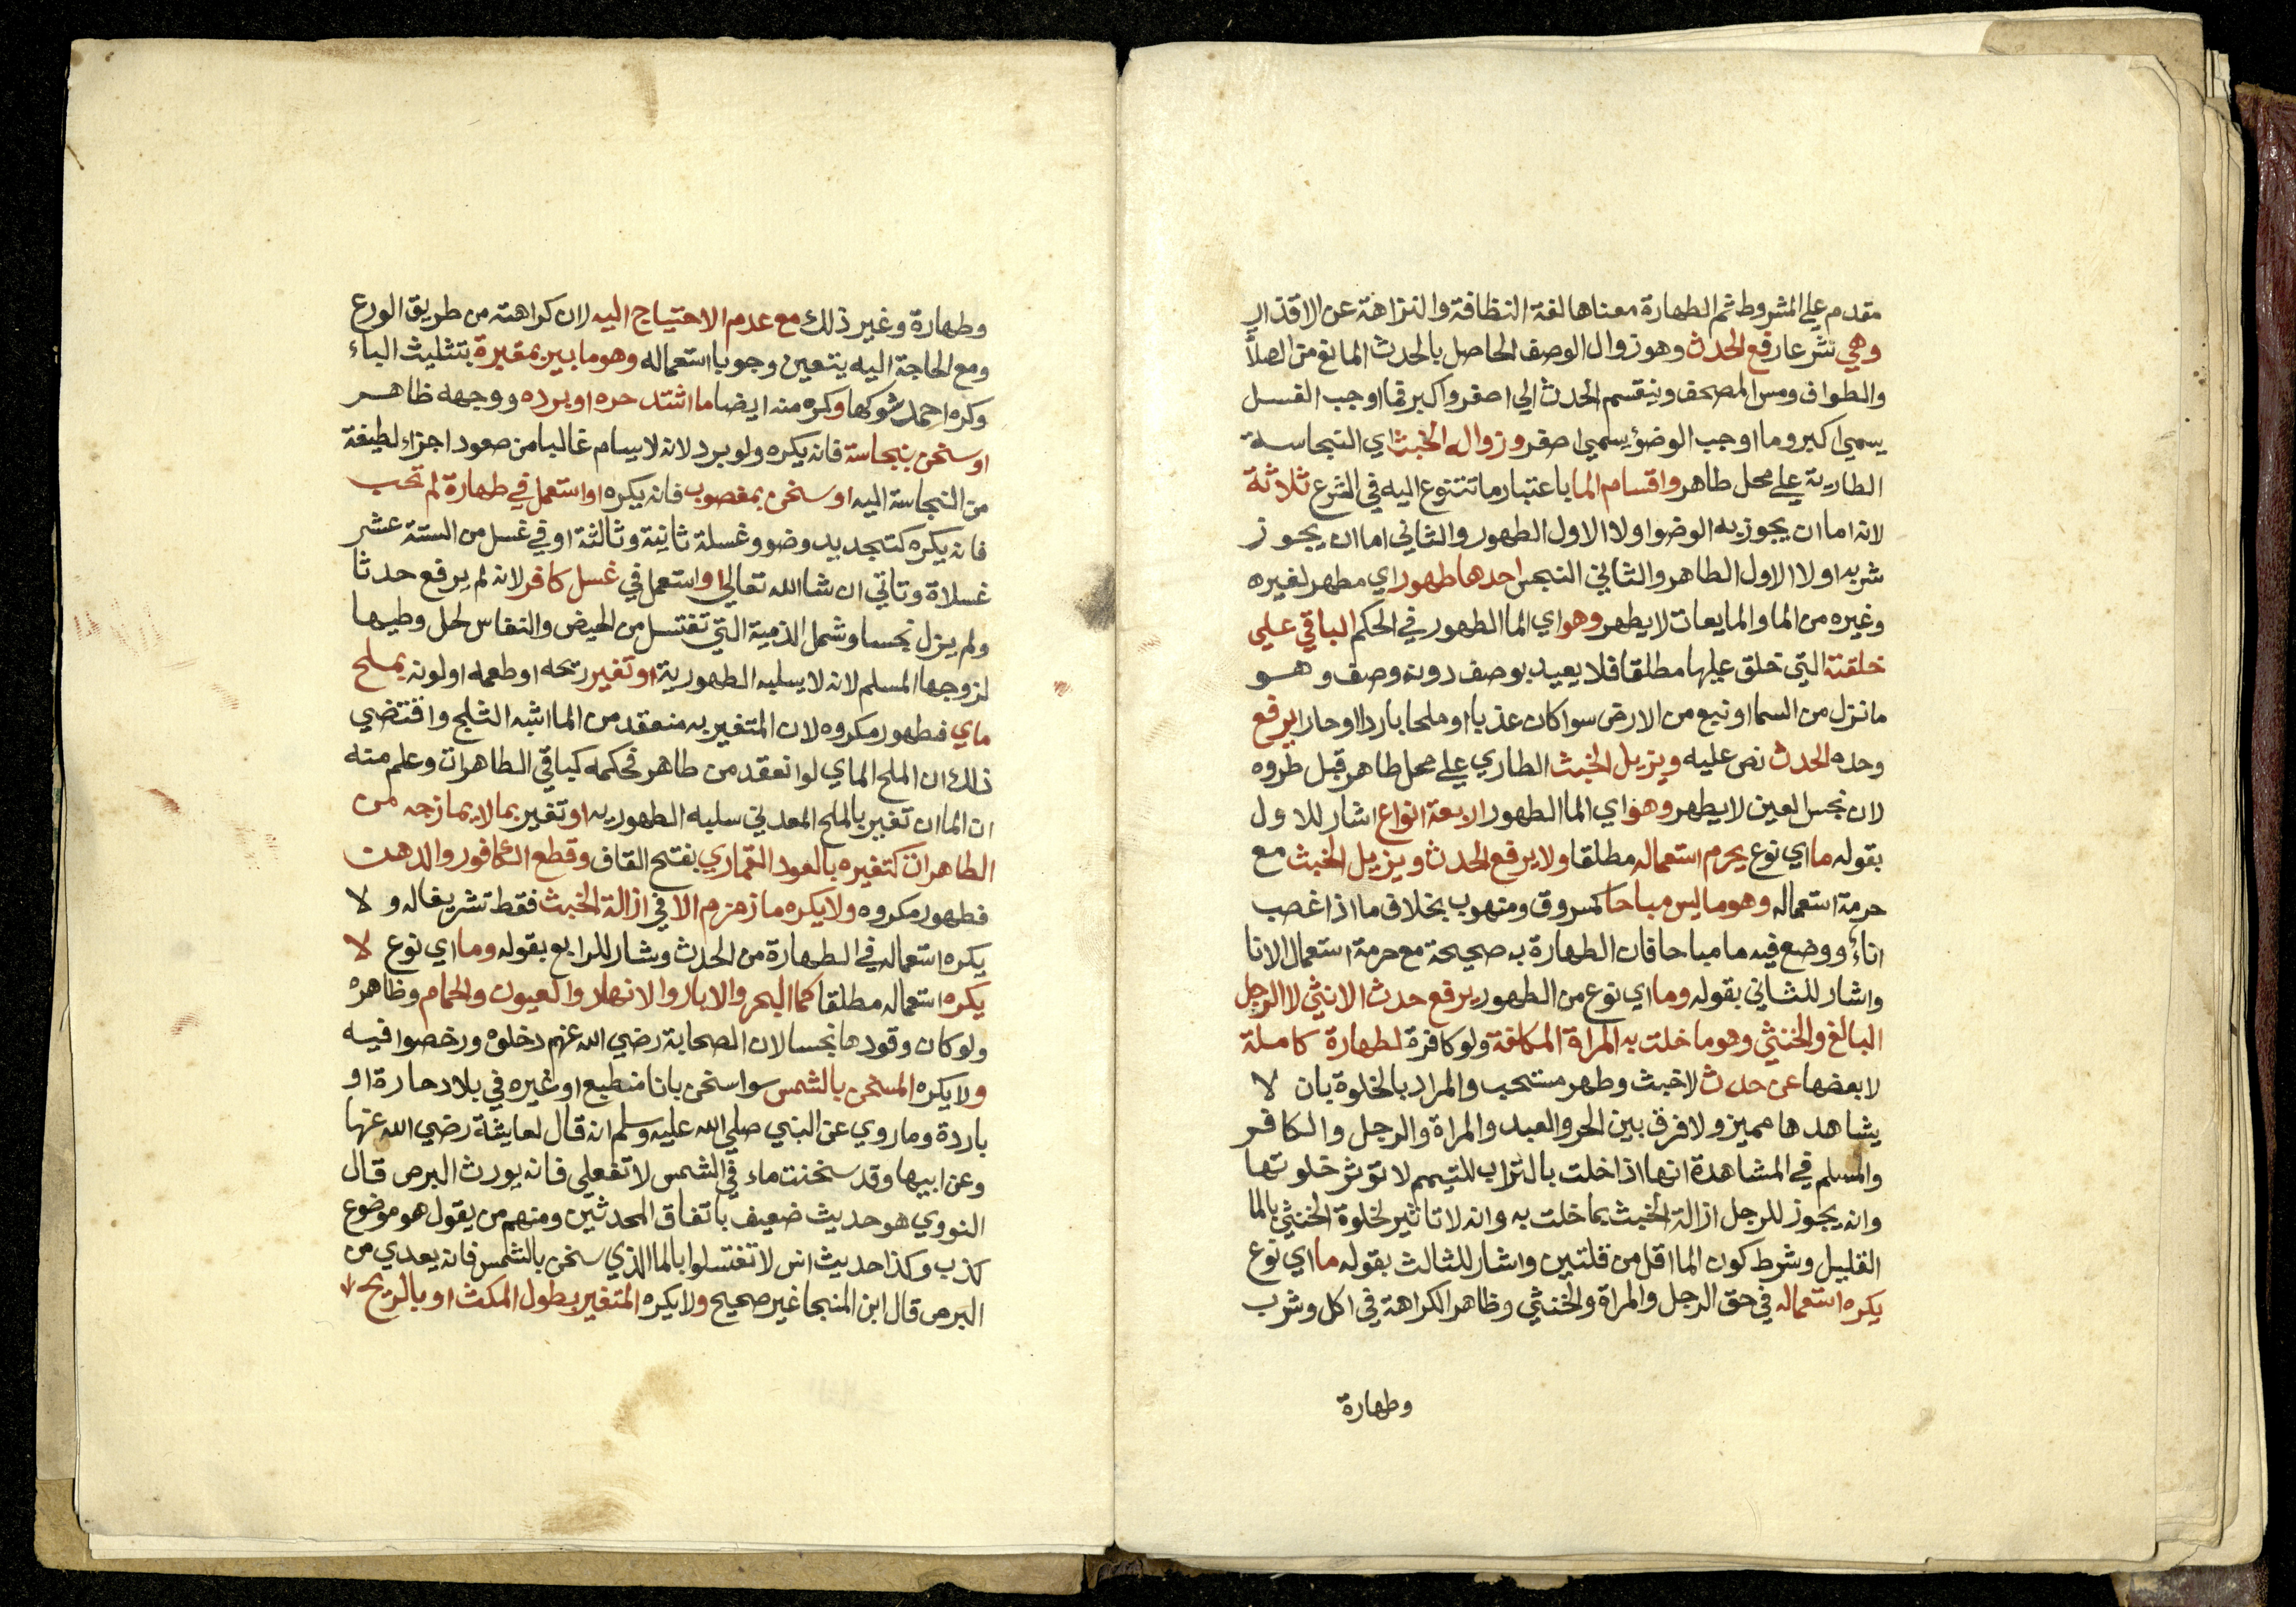 مقدم علي المشروط ثم الطهارة معناها لغة النظافة والنزاهة عن الاقذار
وهي شرعا رفع الحدث وهو زوال الوصف الحاصل بالحدث المانع من الصلاة
والطواف ومس المصحف وينقسم الحدث الي اصغر واكبر فما اوجب الغسل
يسمي اكبر وما اوجب الوضؤ يسمي اصغر وزوال الخبث اي النجاسة
الطارية علي محل طاهر واقسام الما باعتبار ما تتنوع اليه في الشرع ثلاثة
لانه اما ان يجوز به الوضوا ولا الاول الطهور والثاني اما ان يجوز
شربه اولا الاول الطاهر والثاني النجس احدها طهور اي مطهر لغيره
وغيره من الما والمايعات لا يطهر وهو اي الما الطهور في الحكم الباقي علي
خلقته التي خلق عليها مطلقا فلا يعيد بوصف دون وصف وهو
ما نزل من السما او نبع من الارض سوا كان عذبا او ملحا باردا او حارا يرفع
وحده الحدث نص عليه ويزيل الخبث الطاري علي محل طاهر قبل طروه
لان نجس العين لا يطهر وهو اي الما الطهور اربعة انواع اشار للاول
بقوله ما اي نوع يحرم استعماله مطلقا ولا يرفع الحدث ويزيل الخبث مع
حرمة استعماله وهو ما ليس مباحا كمسروق ومنهوب بخلاف ما اذا غصب
اناءً ووضع فيه ما مباحا فان الطهارة به صحيحة مع حرمة استعمال الانا
واشار للثاني بقوله وما اي نوع من الطهور يرفع حدث الانثي لا الرجل
البالغ والخنثي وهو ما خلت به المراة المكلفة ولو كافرة لطهارة كاملة
لا بعضها عن حدث لا خبث وطهر مستحب والمراد بالخلوة بان لا
يشاهدها مميز ولا فرق بين الحر والعبد والمراة والرجل والكافر
والمسلم في المشاهدة انها اذا خلت بالتراب للتيمم لا تؤثر خلوتها
وانه يجوز للرجل ازالة الخبث بما خلت به وانه لا تاثير لخلوة الخنثي بالما
القليل وشرط كون الما اقل من قلتين واشار للثالث بقوله ما اي نوع
يكره استعماله في حق الرجل والمراة والخنثي وظاهر الكراهة في اكل وشرب
وطهارة
وطهارة وغير ذلك مع عدم الاحتياج اليه لان كراهته من طريق الورع
ومع الحاجة اليه يتعين وجوبا استعماله وهو ما ببير بمقبرة بتثليث الباء
وكره احمد شوكها وكره منه ايضا ما اشتد حره او برده ووجهه ظاهر
او سخن بنجاسة فانه يكره ولو برد لانه لا يسلم غالبا من صعود اجزاء لطيفة
من النجاسة اليه او سخن بمغصوب فانه يكره او استعمل في طهارة لم تجب
فانه يكره كتجديد وضو وغسلة ثانية وثالثة او في غسل من الستة عشر
غسلاة وتاتي ان شا الله تعالي او استعمل في غسل كافر لانه لم يرفع حدثا
ولم يزل نجسا وشمل الذمية التي تغتسل من الحيض والنفاس لحل وطيها
لزوجها المسلم لانه لا يسلبه الطهورية او تغير ريحه او طعمه او لونه بملح
ماي فطهور مكروه لان المتغير به منعقد من الما اشبه الثلج واقتضي
ذلك ان الملح الماي لو انعقد من طاهر فحكمه كباقي الطاهرات وعلم منه
ان الما ان تغير بالملح المعدني سلبه الطهوريه او تغير بما لا يمازجه من
الطاهرات كتغيره بالعود القماري بفتح القاف وقطع الكافور والدهن
فطهور مكروه ولا يكره ما زمزم الا في ازالة الخبث فقط تشريفا له ولا
يكره استعماله في الطهارة من الحدث وشار للرابع بقوله وما اي نوع لا
يكره استعماله مطلقا كما البحر والابار والانهار والعيون والحمام وظاهره
ولو كان وقودها نجسا لان الصحابة رضي الله عنهم دخلوه ورخصوا فيه
ولا يكره المسخن بالشمس سوا سخن بانا منطبع او غيره في بلاد حارة او
باردة وما روي عن النبي صلي الله عليه وسلم انه قال لعايشة رضي الله عنها
وعن ابيها وقد سخنت ماء في الشمس لا تفعلي فانه يورث البرص قال
النووي هو حديث ضعيف باتفاق المحدثين ومنهم من يقول هو موضوع
كذب وكذا حديث انس لا تغتسلوا بالما الذي سخن بالشمس فانه يعدي من
البرص قال ابن المنجا غير صحيح ولا يكره المتغير بطول المكث او بالريح